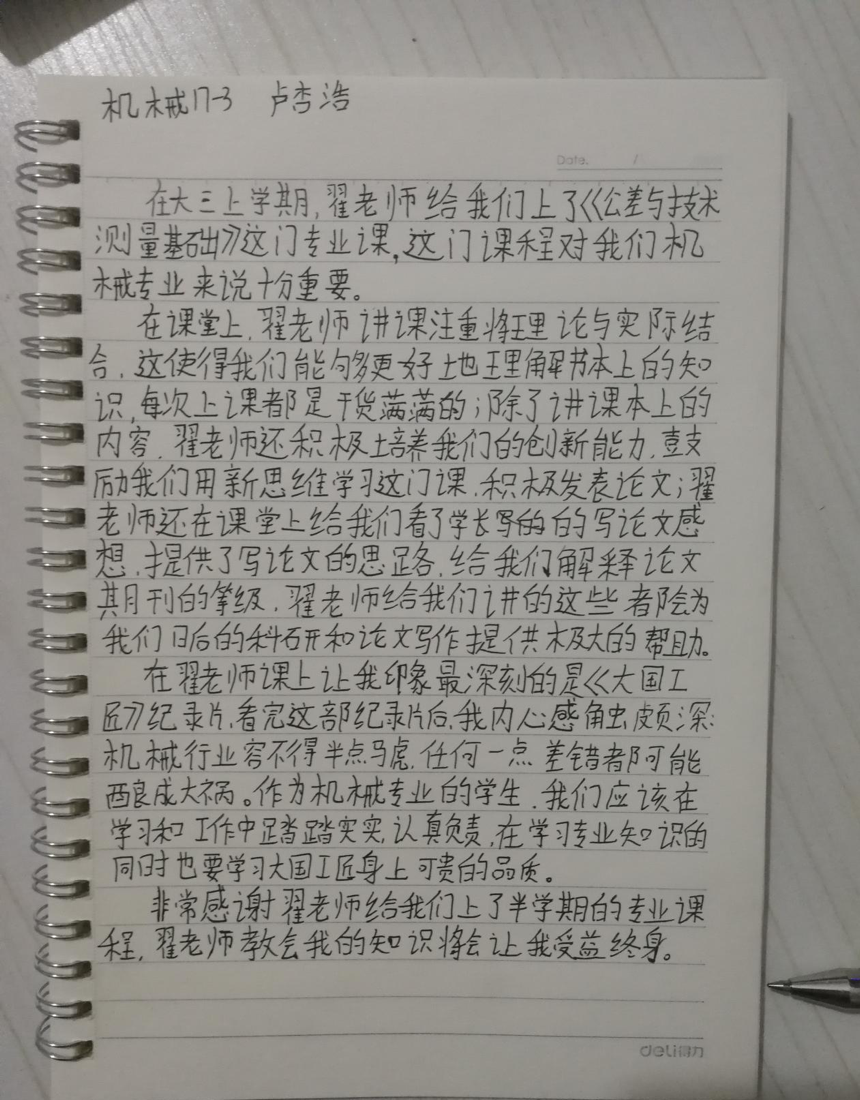 机械17-3 卢杏浩
Date. /
在大三上学期,翟老师给我们上了《公差与技术
测量基础》这门专业课,这门课程对我们机
械专业来说十分重要。
在课堂上,翟老师讲课注重将理论与实际结
合,这使得我们能够更好地理解书本上的知
识,每次上课都是干货满满的;除了讲课本上的
内容,翟老师还积极培养我们的创新能力,鼓
励我们用新思维学习这门课,积极发表论文;翟
老师还在课堂上给我们看了学长写的的写论文感
想,提供了写论文的思路,给我们解释论文
期刊的等级,翟老师给我们讲的这些都会为
我们日后的科研和论文写作提供极大的帮助。
在翟老师课上让我印象最深刻的是《大国工
匠》纪录片,看完这部纪录片后,我内心感触颇深:
机械行业容不得半点马虎,任何一点差错都可能
酿成大祸。作为机械专业的学生,我们应该在
学习和工作中踏踏实实,认真负责,在学习专业知识的
同时也要学习大国工匠身上可贵的品质。
非常感谢翟老师给我们上了半学期的专业课
程,翟老师教会我的知识将会让我受益终身。
deli得力